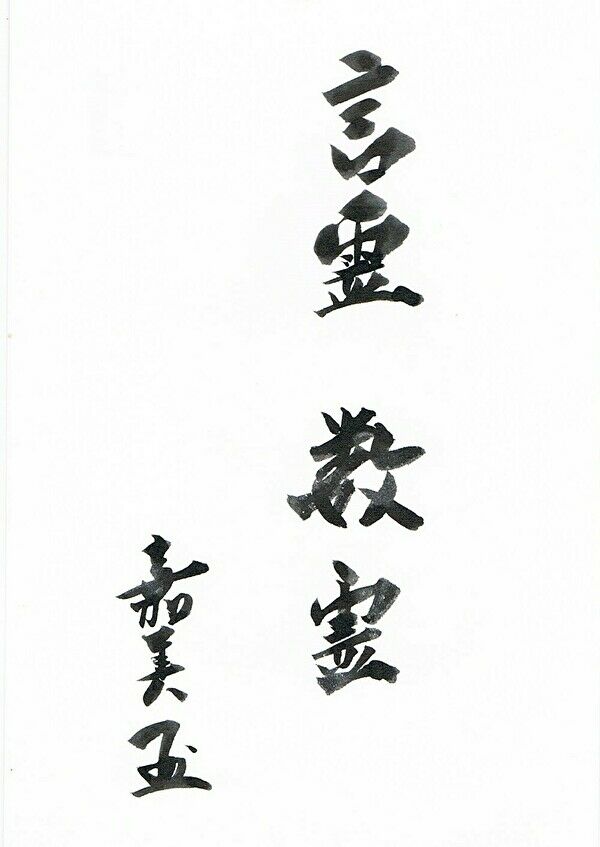 言霊 数霊
嘉美玉